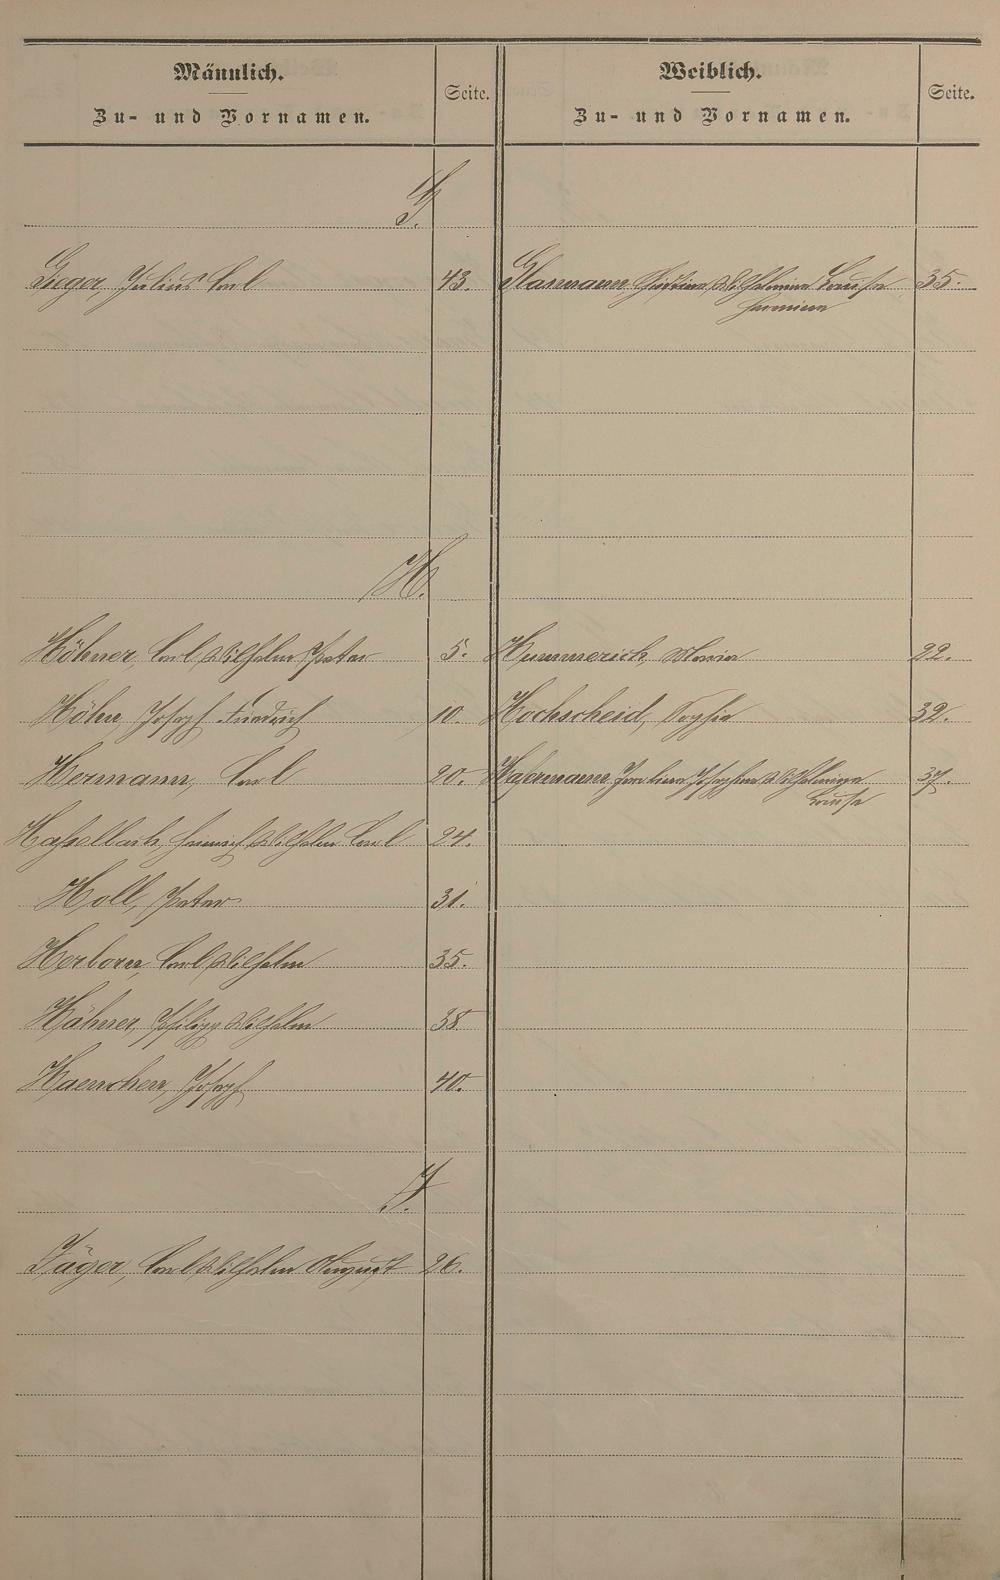 Männlich.
Zu- und Vornamen.
Seite.
Weiblich.
Zu- und Vornamen.
Seite.
G.
Gieger, Julius Carl 43.
Glasmann, Wilhelmine Louise 35.
Hermine
H.
Höhner, Carl Wilhelm Peter 5.
Hummerich, Maria 22.
Höhn, Joseph Friedrich 10.
Hochscheid, Sophia 32.
Hermann, Carl 20.
Hafermann, Josephine Wilhelmine 37.
Louise
Haßelbach, Heinrich Wilhelm Carl 24.
Holl, Peter 31.
Herborn, Carl Wilhelm 35.
Hähner, Philipp Wilhelm 38
Haenchen, Joseph 40.
J.
Jäger, Carl Wilhelm August 26.